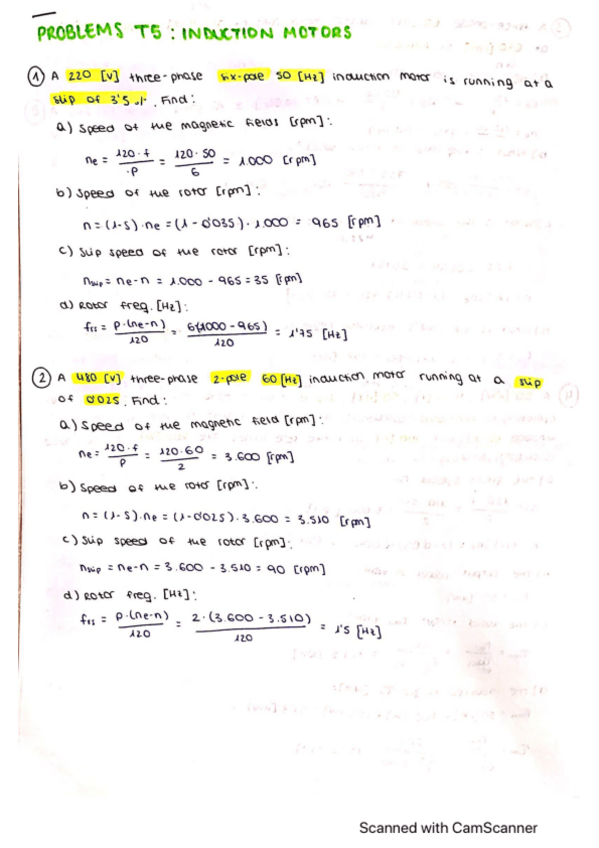 PROBLEMS T5: INDUCTION MOTORS
① A 220 [V] three-phase six-pole 50 [Hz] induction motor is running at a
slip of 3'5 %. Find:
a) Speed of the magnetic fields [rpm]:
ne = 120·f / ·P = 120·50 / 6 = 1.000 [rpm]
b) Speed of the rotor [rpm]:
n = (1-S)·ne = (1-0'035)·1.000 = 965 [rpm]
c) Slip speed of the rotor [rpm]:
nslip = ne-n = 1.000 - 965 = 35 [rpm]
d) Rotor freq. [Hz]:
frs = P·(ne-n) / 120 = 6(1000-965) / 120 = 1'75 [Hz]
② A 480 [V] three-phase 2-pole 60 [Hz] induction motor running at a slip
of 0'025. Find:
a) Speed of the magnetic field [rpm]:
ne = 120·f / P = 120·60 / 2 = 3.600 [rpm]
b) Speed of the rotor [rpm]:
n = (1-S)·ne = (1-0'025)·3.600 = 3.510 [rpm]
c) Slip speed of the rotor [rpm]:
nslip = ne-n = 3.600 - 3.510 = 90 [rpm]
d) Rotor freq. [Hz]:
frs = P·(ne-n) / 120 = 2·(3.600 - 3.510) / 120 = 1'5 [Hz]
Scanned with CamScanner